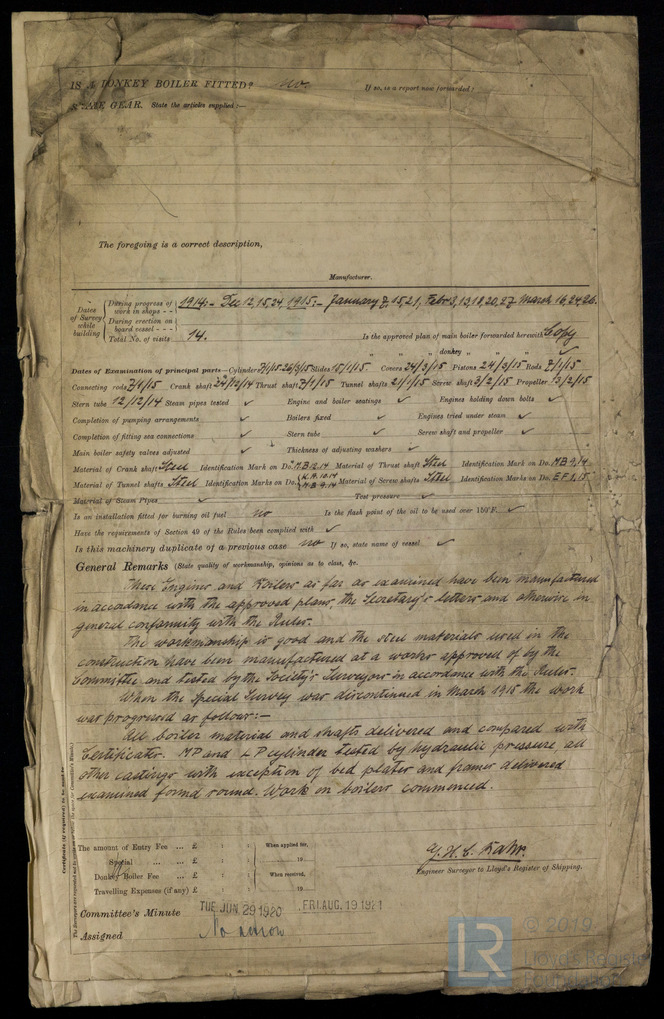 IS A DONKEY BOILER FITTED? no. If so, is a report now forwarded?
SPARE GEAR. State the articles supplied:—
The foregoing is a correct description,
Manufacturer.
Dates of Survey while building
During progress of work in shops - - 1914:- Dec 12, 15, 24, 1915:- January 7, 15, 21, Feb 3, 13, 18, 20, 27 March 16, 24, 26.
During erection on board vessel - - -
Total No. of visits 14. Is the approved plan of main boiler forwarded herewith Copy
" " " donkey " " ✓
Dates of Examination of principal parts—Cylinders Slides 15/1/15 Covers 24/3/15 Pistons 24/3/15 Rods 7/1/15
Connecting rods 7/1/15 Crank shaft 24/12/14 Thrust shaft 7/1/15 Tunnel shafts 21/1/15 Screw shaft 3/2/15 Propeller 13/2/15
Stern tube 12/12/14 Steam pipes tested ✓ Engine and boiler seatings ✓ Engines holding down bolts ✓
Completion of pumping arrangements ✓ Boilers fixed ✓ Engines tried under steam ✓
Completion of fitting sea connections ✓ Stern tube ✓ Screw shaft and propeller ✓
Main boiler safety valves adjusted ✓ Thickness of adjusting washers ✓
Material of Crank shaft Steel Identification Mark on Do. M.B.12.14 Material of Thrust shaft Steel Identification Mark on Do. MB 9.14
Material of Tunnel shafts Steel Identification Marks on Do. K.A.10.14 M.B.9.14 Material of Screw shafts Steel Identification Marks on Do. E F 1.15
Material of Steam Pipes ✓ Test pressure ✓
Is an installation fitted for burning oil fuel no Is the flash point of the oil to be used over 150°F. ✓
Have the requirements of Section 49 of the Rules been complied with ✓
Is this machinery duplicate of a previous case no If so, state name of vessel ✓
General Remarks (State quality of workmanship, opinions as to class, &c.
These Engines and Boilers as far as examined have been manufactured
in accordance with the approved plans, the Secretary's letters and otherwise in
general conformity with the Rules.
The workmanship is good and the steel materials used in the
construction have been manufactured at a works approved of by the
Committee and tested by the Society's Surveyors in accordance with the Rules.
When the Special Survey was discontinued in March 1915 the work
was progressed as follows:—
All boiler material and shafts delivered and compared with
Certificates. MP and LP cylinder tested by hydraulic pressure all
other castings with exception of bed plates and frames delivered
examined found sound. Work on boilers commenced.
The amount of Entry Fee ... £ : : When applied for,
Special ... £ : : 19
Donkey Boiler Fee ... £ : : When received,
Travelling Expenses (if any) £ : : 19
Engineer Surveyor to Lloyd's Register of Shipping.
Committee's Minute TUE. JUN. 29 1920 FRI. AUG. 19 1921
Assigned No action
Certificate (if required) to be sent to
LR
2019
Lloyd's Register
Foundation